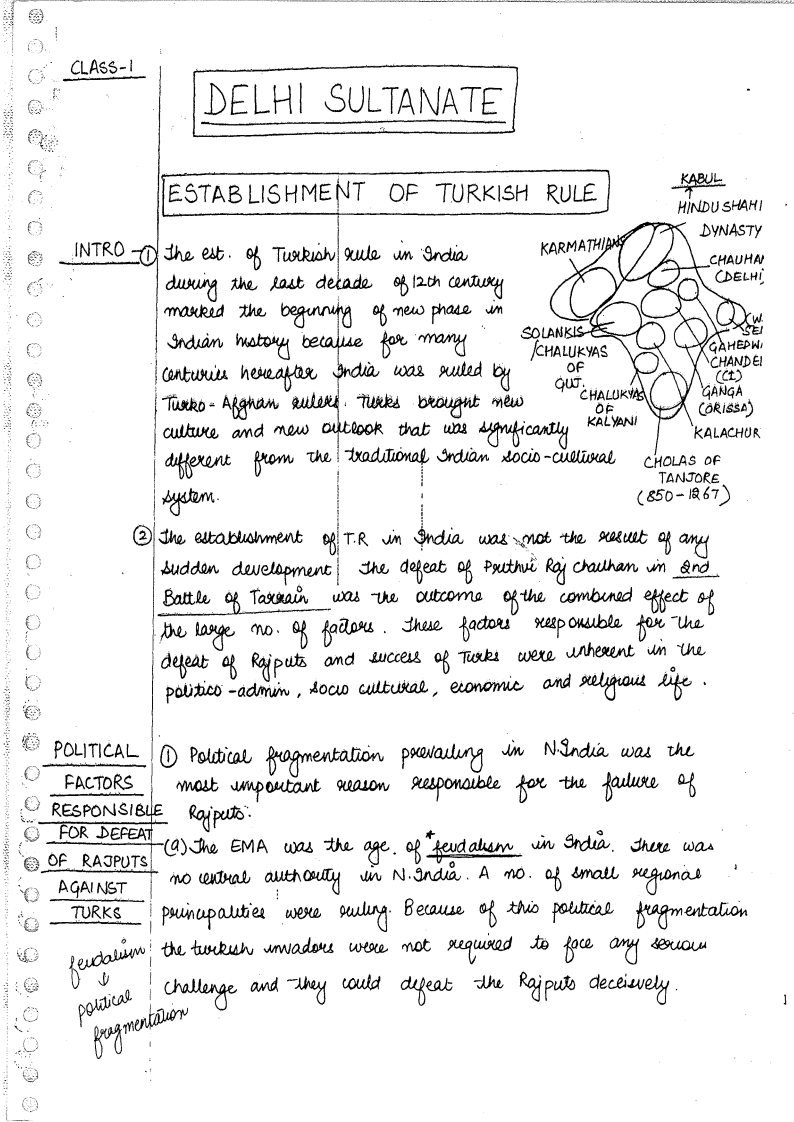 CLASS-1
DELHI SULTANATE
ESTABLISHMENT OF TURKISH RULE
KABUL
HINDU SHAHI
DYNASTY
KARMATHIANS
CHAUHAN
(DELHI)
SOLANKIS
/CHALUKYAS
OF
GUJ.
CHALUKYAS
OF
KALYANI
GAHEDW
CHANDEL
(CI)
GANGA
(ORISSA)
KALACHUR
CHOLAS OF
TANJORE
(850-1267)
INTRO - ① The est. of Turkish rule in India
during the last decade of 12th century
marked the beginning of new phase in
Indian history because for many
centuries hereafter India was ruled by
Turko-Afghan rulers. Turks brought new
culture and new outlook that was significantly
different from the traditional Indian socio-cultural
system.
② The establishment of T.R in India was not the result of any
sudden development. The defeat of Prithvi Raj chauhan in 2nd
Battle of Tarrain was the outcome of the combined effect of
the large no. of factors. These factors responsible for the
defeat of Rajputs and success of Turks were inherent in the
politico-admin, socio cultural, economic and religious life.
POLITICAL
FACTORS
RESPONSIBLE
FOR DEFEAT
OF RAJPUTS
AGAINST
TURKS
① Political fragmentation prevailing in N.India was the
most important reason responsible for the failure of
Rajputs.
(a) The EMA was the age of *feudalism in India. There was
no central authority in N.India. A no. of small regional
principalities were ruling. Because of this political fragmentation
the turkish invadors were not required to face any serious
challenge and they could defeat the Rajputs deceisvely.
feudalism
↓
political
fragmentation
1